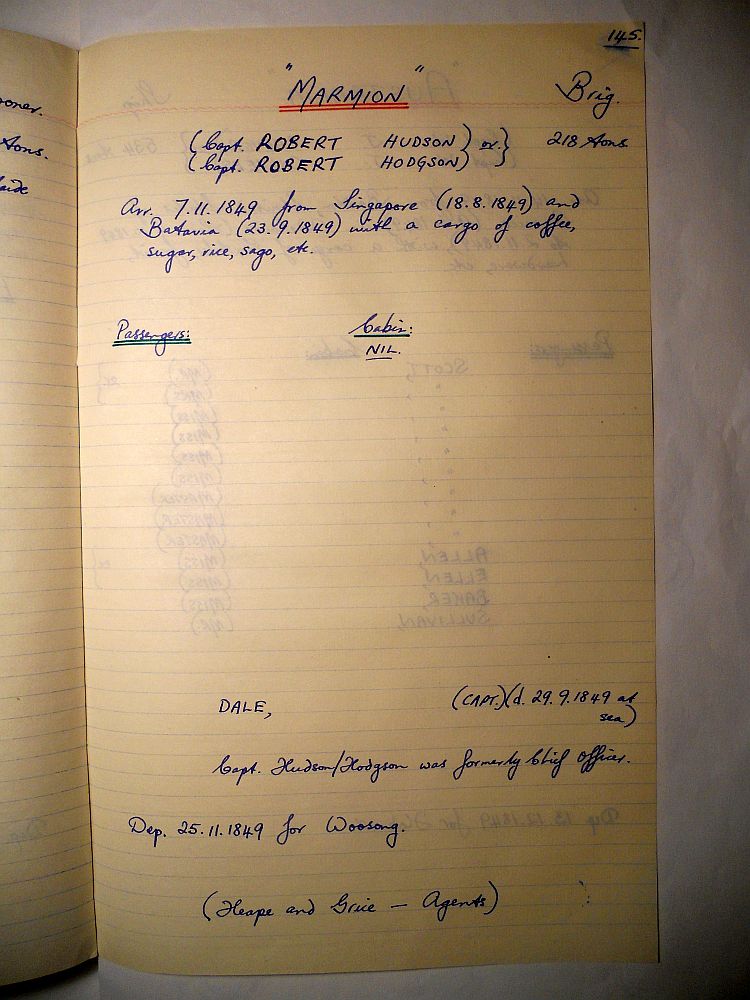 145.
"MARMION"
Brig.
(Capt. ROBERT HUDSON) or }
(Capt. ROBERT HODGSON) }
218 Tons
Arr. 7.11.1849 from Singapore (18.8.1849) and
Batavia (23.9.1849) with a cargo of coffee,
sugar, rice, sago, etc.
Passengers:
Cabin:
NIL.
DALE, (CAPT.) (d. 29.9.1849 at
sea)
Capt. Hudson/Hodgson was formerly Chief Officer.
Dep. 25.11.1849 for Woosong.
(Heape and Grice — Agents)
Tons.